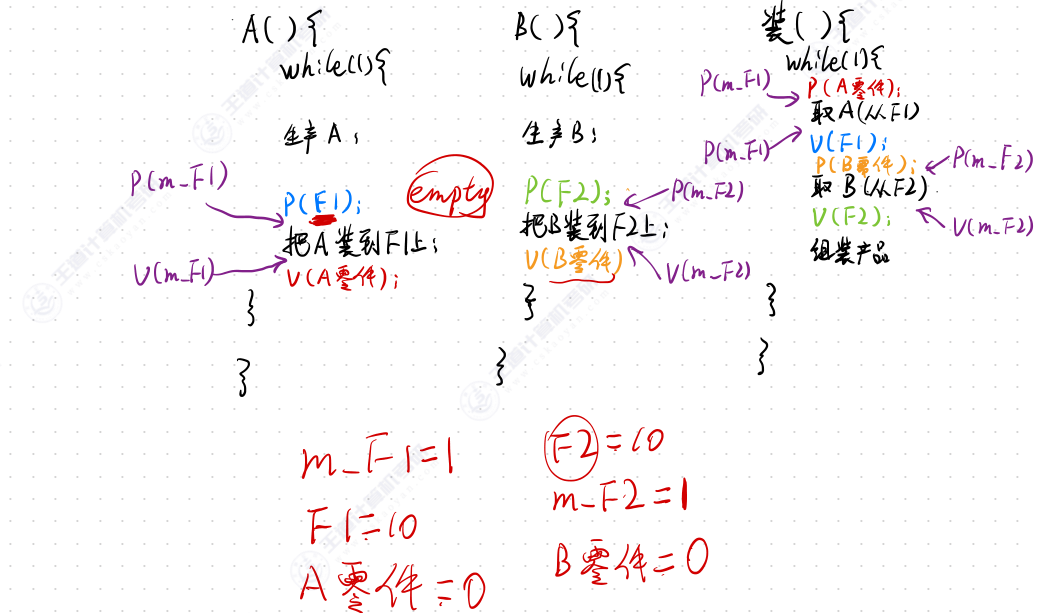 A(){
while(1){
生产A;
P(m_F1)
P(F1);
empty
把A装到F1上;
V(m_F1)
V(A零件);
}
}
B(){
while(1){
生产B;
P(F2);
P(m_F2)
把B装到F2上;
V(B零件)
V(m_F2)
}
}
装(){
while(1){
P(m_F1)
P(A零件);
取A(从F1)
P(m_F1)
V(F1);
P(B零件);
P(m_F2)
取B(从F2)
V(F2);
V(m_F2)
组装产品
}
}
m_F1=1
F1=10
A零件=0
F2=10
m_F2=1
B零件=0